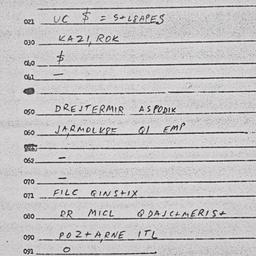 021 UC $ = S+LSAPES
030 KAZI, ROK
040 $
041 -
050 DRESTERMIR ASPODIK
060 JARMOLVSE QI EMP
062 -
070 -
071 FILC QINS+IX
080 DR MICL QDAJC+MERIS+
090 POZ+ARNE ITL
091 0